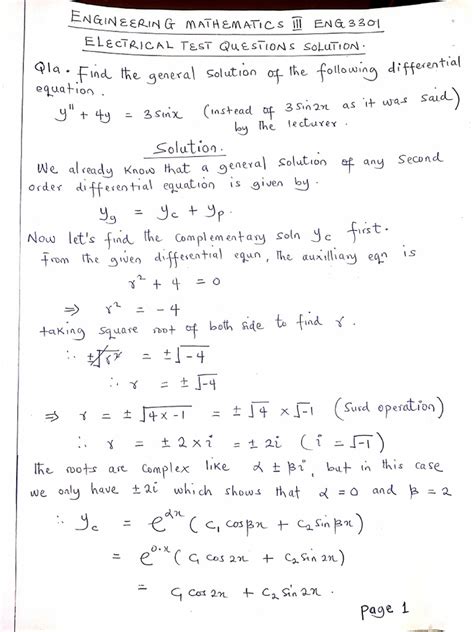 ENGINEERING MATHEMATICS III ENG 3301
ELECTRICAL TEST QUESTIONS SOLUTION.
Q1a. Find the general solution of the following differential
equation.
y" + 4y = 3 sinx (instead of 3 sin2x as it was said)
by the lecturer.
Solution.
We already know that a general solution of any second
order differential equation is given by.
yg = yc + yp.
Now let's find the complementary soln yc first.
From the given differential equn, the auxilliary eqn is
r² + 4 = 0
⇒ r² = -4
taking square root of both side to find r.
∴ ±√r² = ±√-4
∴ r = ±√-4
⇒ r = ±√4x-1 = ±√4 x √-1 (Surd operation)
∴ r = ± 2 x i = ± 2i (i = √-1)
The roots are complex like α ± βi, but in this case
we only have ±2i which shows that α = 0 and β = 2
∴ yc = e^αx (C₁ cosβx + C₂ sinβx)
= e^0·x (C₁ cos 2x + C₂ sin 2x)
= C₁ cos 2x + C₂ sin 2x.
page 1